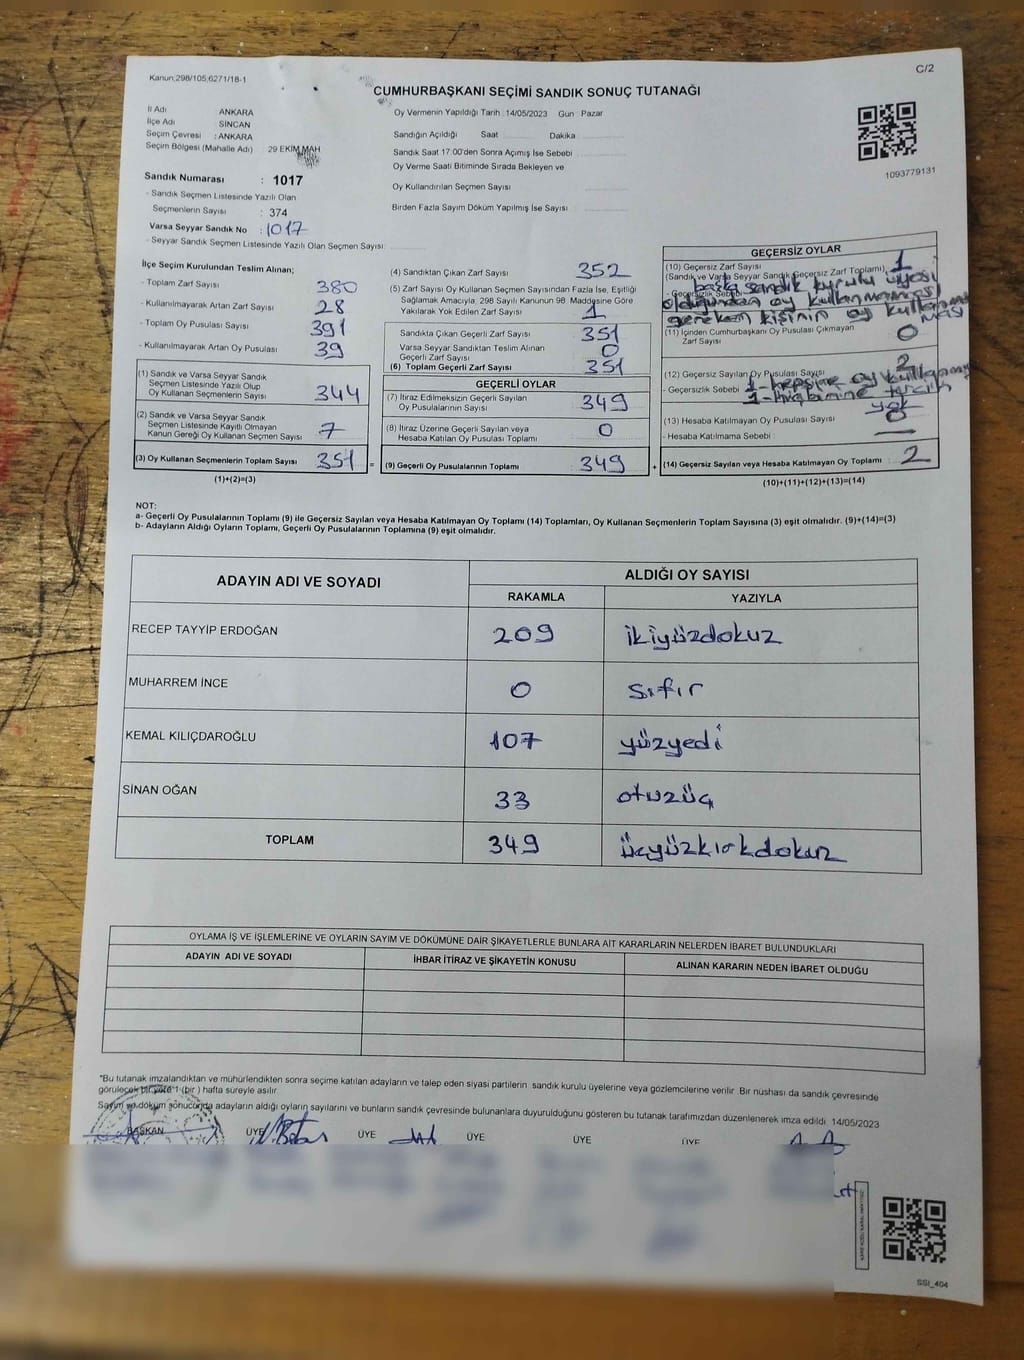 Kanun;298/105,6271/18-1
C/2
CUMHURBAŞKANI SEÇİMİ SANDIK SONUÇ TUTANAĞI
İl Adı ANKARA
İlçe Adı SİNCAN
Seçim Çevresi : ANKARA
Seçim Bölgesi (Mahalle Adı) : 29 EKİM MAH
Oy Vermenin Yapıldığı Tarih : 14/05/2023 Gün : Pazar
Sandığın Açıldığı Saat Dakika
Sandık Saat 17.00'den Sonra Açımış İse Sebebi
Oy Verme Saati Bitiminde Sırada Bekleyen ve
Oy Kullandırılan Seçmen Sayısı
Birden Fazla Sayım Döküm Yapılmış İse Sayısı
1093779131
Sandık Numarası : 1017
- Sandık Seçmen Listesinde Yazılı Olan
Seçmenlerin Sayısı : 374
Varsa Seyyar Sandık No : 1017
- Seyyar Sandık Seçmen Listesinde Yazılı Olan Seçmen Sayısı:
İlçe Seçim Kurulundan Teslim Alınan;
- Toplam Zarf Sayısı 380
- Kullanılmayarak Artan Zarf Sayısı 28
- Toplam Oy Pusulası Sayısı 391
- Kullanılmayarak Artan Oy Pusulası 39
(1) Sandık ve Varsa Seyyar Sandık
Seçmen Listesinde Yazılı Olup
Oy Kullanan Seçmenlerin Sayısı 344
(2) Sandık ve Varsa Seyyar Sandık
Seçmen Listesinde Kayıtlı Olmayan
Kanun Gereği Oy Kullanan Seçmen Sayısı 7
(3) Oy Kullanan Seçmenlerin Toplam Sayısı 351
(1)+(2)=(3)
(4) Sandıktan Çıkan Zarf Sayısı 352
(5) Zarf Sayısı Oy Kullanan Seçmen Sayısından Fazla İse, Eşitliği
Sağlamak Amacıyla, 298 Sayılı Kanunun 98. Maddesine Göre
Yakılarak Yok Edilen Zarf Sayısı 1
Sandıkta Çıkan Geçerli Zarf Sayısı 351
Varsa Seyyar Sandıktan Teslim Alınan
Geçerli Zarf Sayısı 0
(6) Toplam Geçerli Zarf Sayısı 351
GEÇERLİ OYLAR
(7) İtiraz Edilmeksizin Geçerli Sayılan
Oy Pusulalarının Sayısı 349
(8) İtiraz Üzerine Geçerli Sayılan veya
Hesaba Katılan Oy Pusulası Toplamı 0
= (9) Geçerli Oy Pusulalarının Toplamı 349 +
GEÇERSİZ OYLAR
(10) Geçersiz Zarf Sayısı 1
(Sandık ve Varsa Seyyar Sandık Geçersiz Zarf Toplamı)
- Geçersizlik Sebebi
başka sandık kurulu üyesi
olduğundan oy kullanmaması
gereken kişinin oy kullanması
(11) İçinden Cumhurbaşkanı Oy Pusulası Çıkmayan
Zarf Sayısı 0
(12) Geçersiz Sayılan Oy Pusulası Sayısı 2
- Geçersizlik Sebebi 1-hepsine oy kullanmış
1-hiçbirine tercih
yok
(13) Hesaba Katılmayan Oy Pusulası Sayısı 0
- Hesaba Katılmama Sebebi : —
(14) Geçersiz Sayılan veya Hesaba Katılmayan Oy Toplamı 2
(10)+(11)+(12)+(13)=(14)
NOT:
a- Geçerli Oy Pusulalarının Toplamı (9) ile Geçersiz Sayılan veya Hesaba Katılmayan Oy Toplamı (14) Toplamları, Oy Kullanan Seçmenlerin Toplam Sayısına (3) eşit olmalıdır. (9)+(14)=(3)
b- Adayların Aldığı Oyların Toplamı, Geçerli Oy Pusulalarının Toplamına (9) eşit olmalıdır.
ADAYIN ADI VE SOYADI ALDIĞI OY SAYISI
RAKAMLA YAZIYLA
RECEP TAYYİP ERDOĞAN 209 ikiyüzdokuz
MUHARREM İNCE 0 sıfır
KEMAL KILIÇDAROĞLU 107 yüzyedi
SİNAN OĞAN 33 otuzüç
TOPLAM 349 üçyüzkırkdokuz
OYLAMA İŞ VE İŞLEMLERİNE VE OYLARIN SAYIM VE DÖKÜMÜNE DAİR ŞİKAYETLERLE BUNLARA AİT KARARLARIN NELERDEN İBARET BULUNDUKLARI
ADAYIN ADI VE SOYADI İHBAR İTİRAZ VE ŞİKAYETİN KONUSU ALINAN KARARIN NEDEN İBARET OLDUĞU
"Bu tutanak imzalandıktan ve mühürlendikten sonra seçime katılan adayların ve talep eden siyasi partilerin sandık kurulu üyelerine veya gözlemcilerine verilir. Bir nüshası da sandık çevresinde
görülecek bir yere 1 (bir) hafta süreyle asılır.
Sayım ve döküm sonucunda adayların aldığı oyların sayılarını ve bunların sandık çevresinde bulunanlara duyurulduğunu gösteren bu tutanak tarafımızdan düzenlenerek imza edildi. 14/05/2023
BAŞKAN ÜYE ÜYE ÜYE ÜYE ÜYE
SSI_404